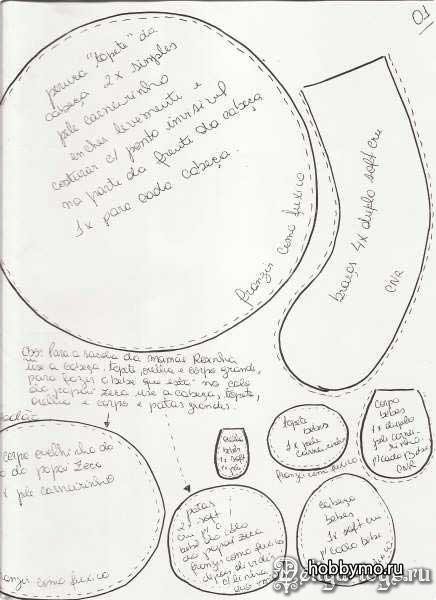 01
peruca "topete" da
cabeça 2x simples
pele carneirinho
encher levemente e
costurar c/ ponto invisível
na parte da frente da cabeça
1x para cada cabeça.
franzir como fuxico
braços 4x duplo soft cru
CNR
Obs: Para a sacola da mamãe Rosinha
use a cabeça, topete, orelha e corpo grande,
para fazer o bebe que está no colo
do papai Zeca use a cabeça, topete,
orelha e corpo e patas grandes.
corpo ovelhinha do
do papai Zeca
pele carneirinho
franzir como fuxico
orelha
bebes
soft
topete
bebes
1x pele
carneirinho
franzir como fuxico
corpo
bebes
1x duplo
pele carnei
rinho
p/ cada bebe
CNR
patas
2x soft
cru p/ o
bebe do colo
do papai Zeca
franzir como fuxico
depois divida
cabeça
bebes
1x soft cru
p/ cada bebe
hobbymo.ru